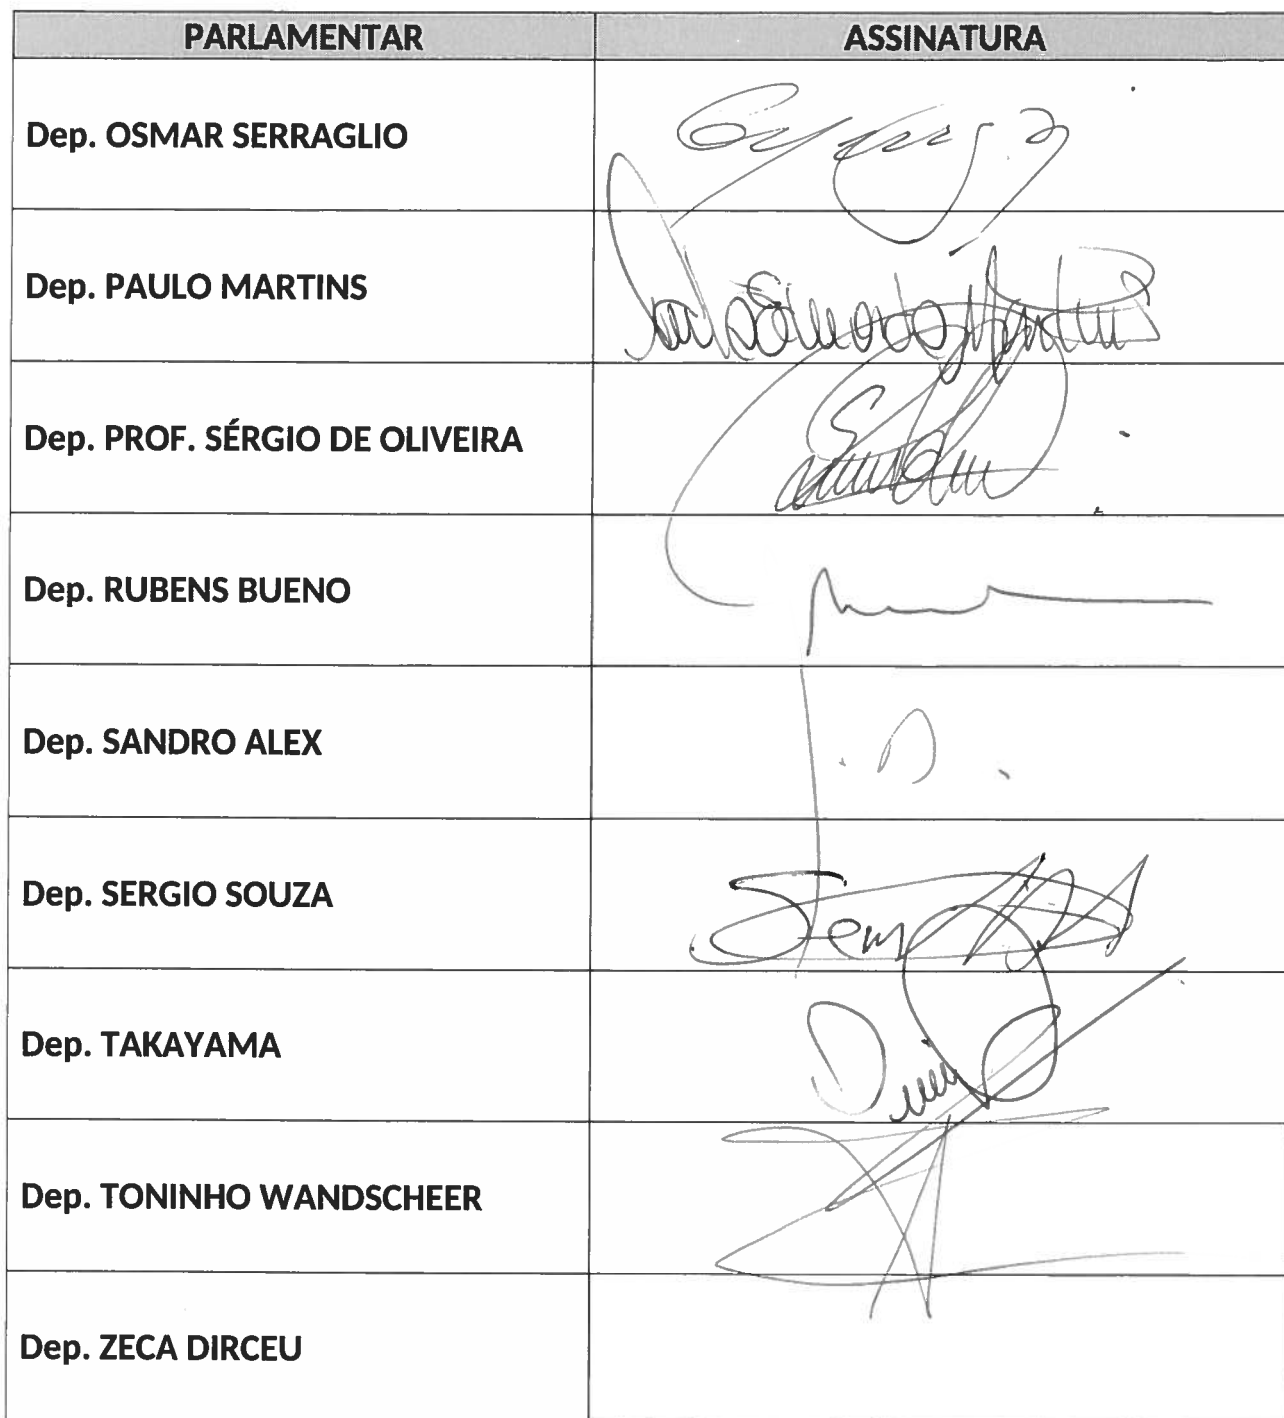 PARLAMENTAR ASSINATURA
Dep. OSMAR SERRAGLIO
Dep. PAULO MARTINS
Paulo Eduardo Martins
Dep. PROF. SÉRGIO DE OLIVEIRA
Dep. RUBENS BUENO
Dep. SANDRO ALEX
Dep. SERGIO SOUZA
Dep. TAKAYAMA
Dep. TONINHO WANDSCHEER
Dep. ZECA DIRCEU